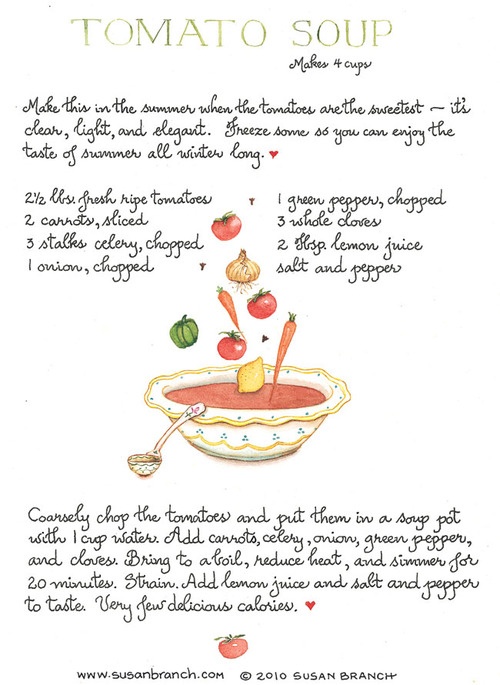 TOMATO SOUP
Makes 4 cups
Make this in the summer when the tomatoes are the sweetest — it's
clear, light, and elegant. Freeze some so you can enjoy the
taste of summer all winter long. ♥
2½ lbs. fresh ripe tomatoes
2 carrots, sliced
3 stalks celery, chopped
1 onion, chopped
1 green pepper, chopped
3 whole cloves
2 Tbsp. lemon juice
salt and pepper
Coarsely chop the tomatoes and put them in a soup pot
with 1 cup water. Add carrots, celery, onion, green pepper,
and cloves. Bring to a boil, reduce heat, and simmer for
20 minutes. Strain. Add lemon juice and salt and pepper
to taste. Very few delicious calories. ♥
www.susanbranch.com © 2010 SUSAN BRANCH